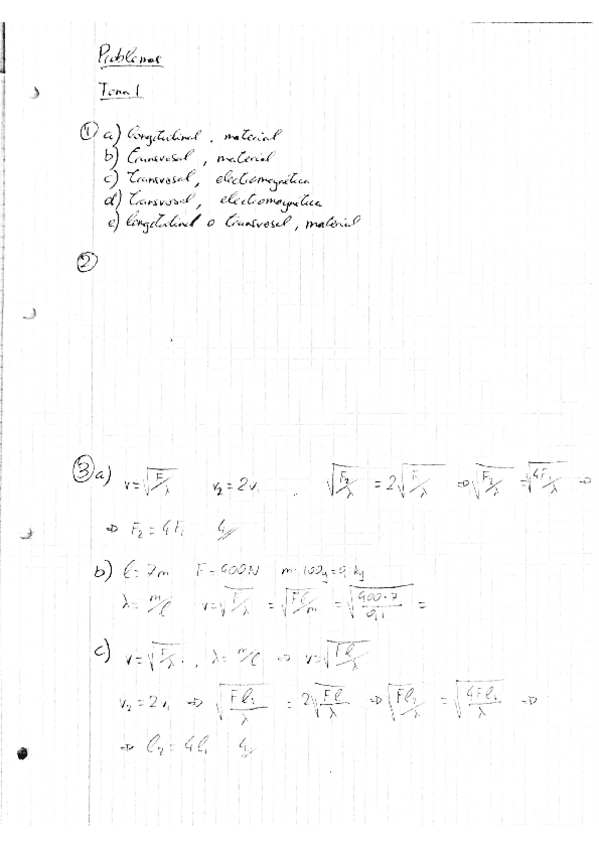 Problemas
Tema 1
① a) longitudinal, material
b) transversal, material
c) transversal, electromagnética
d) transversal, electromagnética
e) longitudinal o transversal, material
②
③ a) v=√(F/λ) v₂=2v₁ √(F₂/λ) = 2√(F/λ) ⇒ √(F₂/λ) = √(4F₁/λ) ⇒
⇒ F₂ = 4F₁
b) l=7m F= 400N m=100g=0,1 kg
λ= m/l v=√(F/λ) = √(Fl/m) = √(400·7/0,1) =
c) v=√(F/λ), λ= m/l ⇒ v=√(Fl/λ)
v₂=2v₁ ⇒ √(Fl₂/λ) = 2√(Fl/λ) ⇒ √(Fl₂/λ) = √(4Fl₁/λ) ⇒
⇒ l₂ = 4l₁